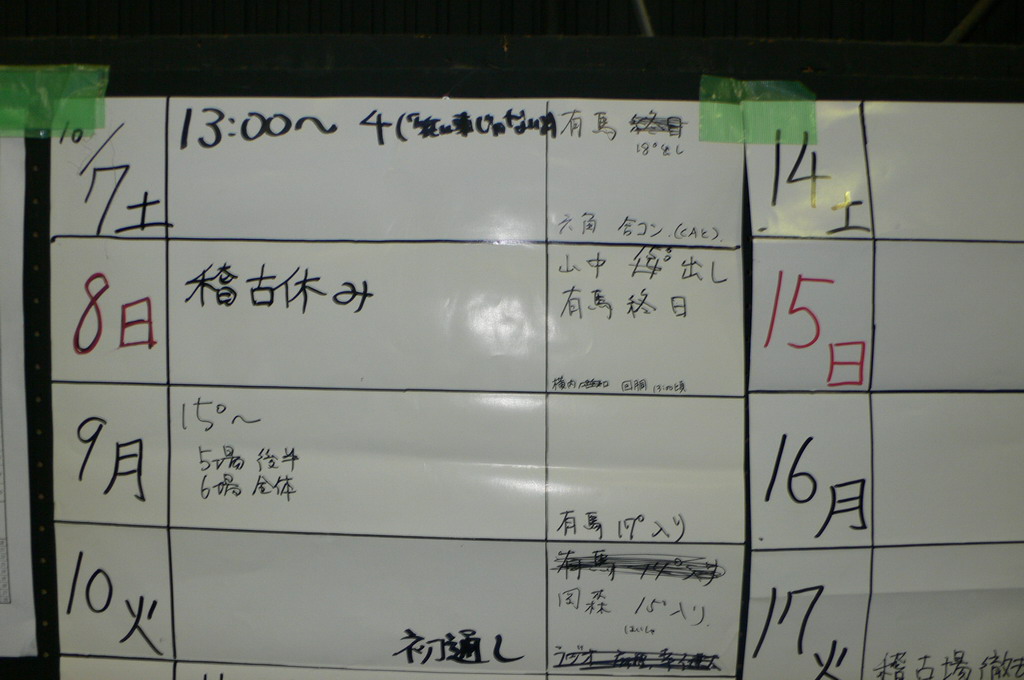 10/7 土
13:00〜 4
有馬 終日
18°出し
六角 合コン.(CAと).
8 日
稽古休み
山中 15°出し
有馬 終日
9 月
15°〜
5場 後半
6場 全体
有馬 17°入り
10 火
初通し
有馬 14°入り
岡森 15°入り.
はいしゃ
14 土
15 日
16 月
17 火
稽古場徹去